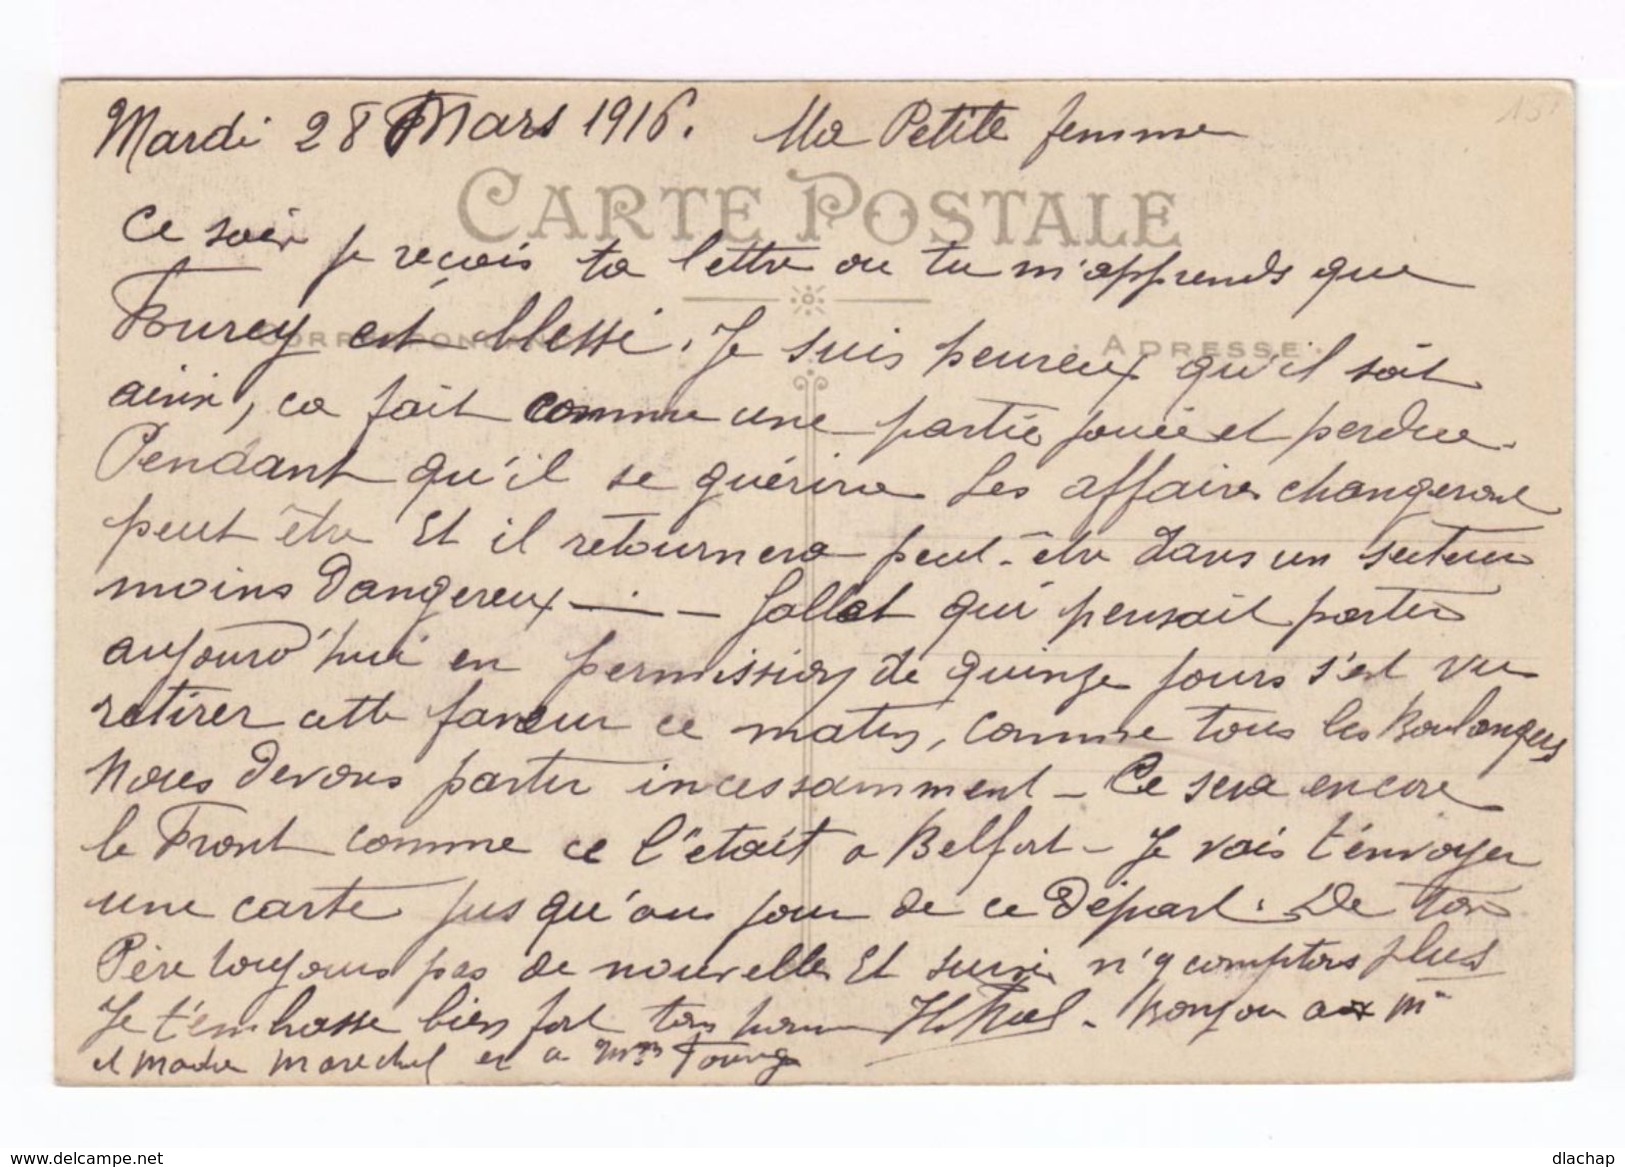 Mardi 28 Mars 1916. Ma Petite femme
CARTE POSTALE
Ce soir je reçois ta lettre ou tu m'apprends que
Fourey est blessé. Je suis heureux qu'il soit
CORRESPONDANCE
ADRESSE
ainsi, ca fait comme une partie jouée et perdue.
Pendant qu'il se guérira Les affaires changeront
peut être Et il retournera peut-être dans un secteur
moins Dangereux —.— Gallot qui pensait partir
aujourd'hui en permission de quinze jours s'est vu
retirer cette faveur ce matin, comme tous les Boulangers
Nous devons partir incessamment - Ce sera encore
le Front comme ce l'était a Belfort - Je vais t'envoyer
une carte jusqu'au jour de ce Départ. De ton
Père toujours pas de nouvelles Et n'y comptons plus
Je t'embrasse bien fort ton Bonjour aux Mr
et Madame Marechal et a Mme Fourey
www.delcampe.net
dlachap